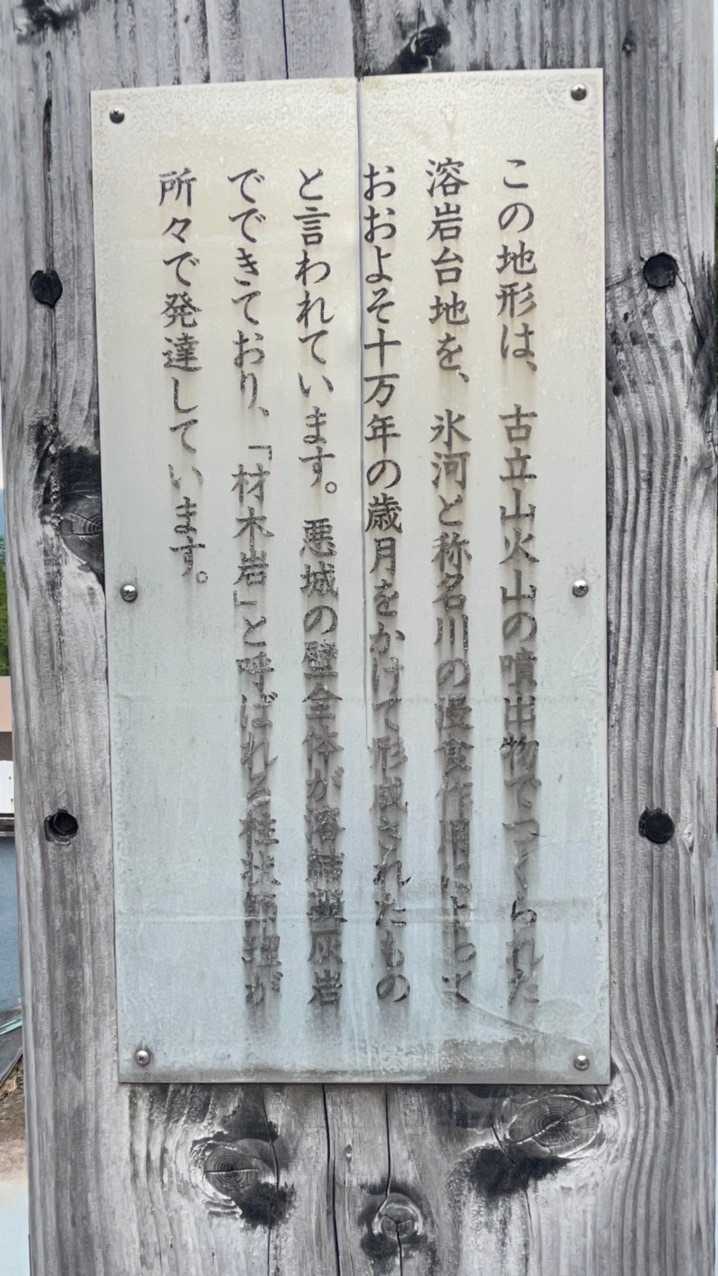 この地形は、古立山火山の噴出物でつくられた
溶岩台地を、氷河と称名川の浸食作用によって
おおよそ十万年の歳月をかけて形成されたもの
と言われています。悪城の壁全体が溶結凝灰岩
でできており、「材木岩」と呼ばれる柱状節理が
所々で発達しています。